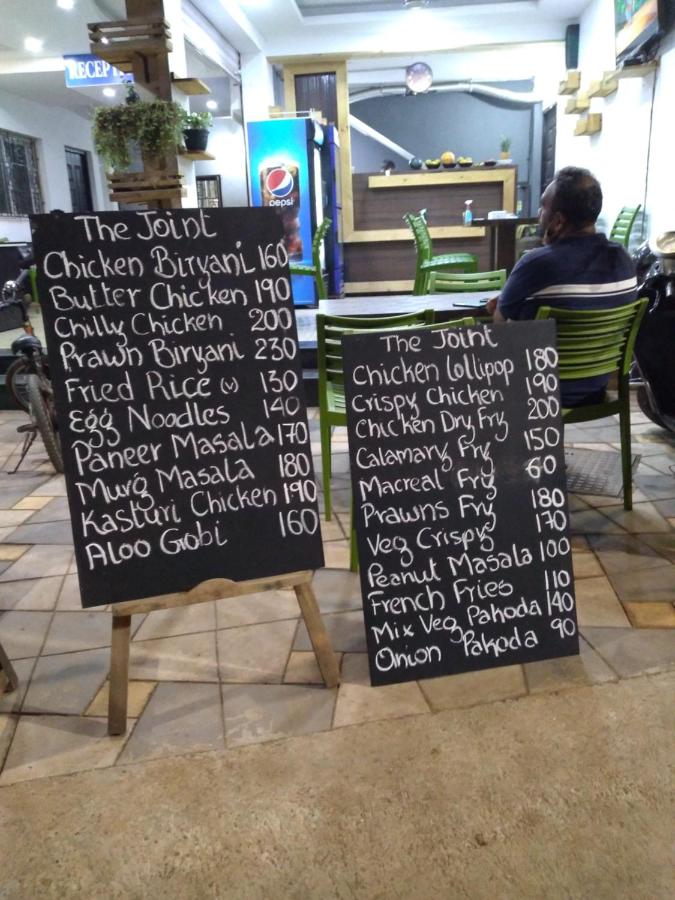 RECEPT
pepsi
The Joint
Chicken Biryani 160
Butter Chicken 190
Chilly Chicken 200
Prawn Biryani 230
Fried Rice (v) 130
Egg Noodles 140
Paneer Masala 170
Murg Masala 180
Kasturi Chicken 190
Aloo Grobi 160
The Joint
Chicken Lollipop 180
Crispy Chicken 190
Chicken Dry Fry 200
Calamary Fry 150
Macreal Fry 60
Prawns Fry 180
Veg Crispy 170
Peanut Masala 100
French Fries 110
Mix Veg Pakoda 140
Onion Pakoda 90